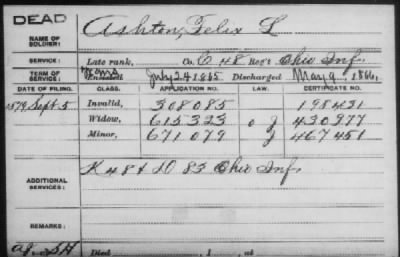 DEAD
NAME OF SOLDIER: Ashton, Felix L
SERVICE: Late rank, Co. C 48 Reg't Ohio Inf.
TERM OF SERVICE: Enlisted July 24 1865 Discharged May 9, 1866,
DATE OF FILING. CLASS. APPLICATION NO. LAW. CERTIFICATE NO.
1879 Sept. 5 Invalid, 308085 198431
Widow, 615323 430377
Minor, 671079 467451
ADDITIONAL SERVICES: K 48 & D 83 Ohio Inf.
REMARKS:
Died , 1 , at